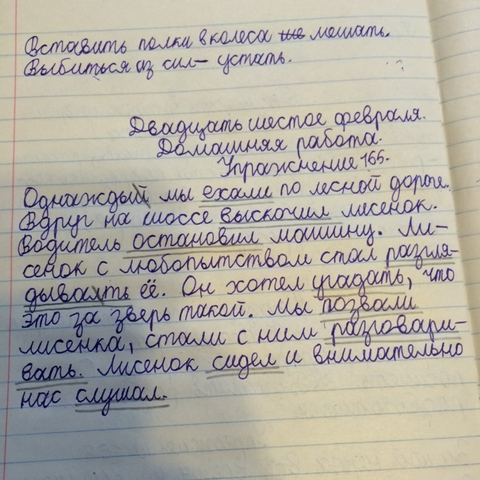 Вставить полки в колеса не мешать.
Выбиться из сил - устать.
Двадцать шестое февраля.
Домашняя работа.
Упражнение 165.
Однажды мы ехали по лесной дороге.
Вдруг на шоссе выскочил лисенок.
Водитель остановил машину. Ли-
сенок с любопытством стал разгля-
дывать её. Он хотел угадать, что
это за зверь такой. Мы позвали
лисенка, стали с ним разговари-
вать. Лисенок сидел и внимательно
нас слушал.